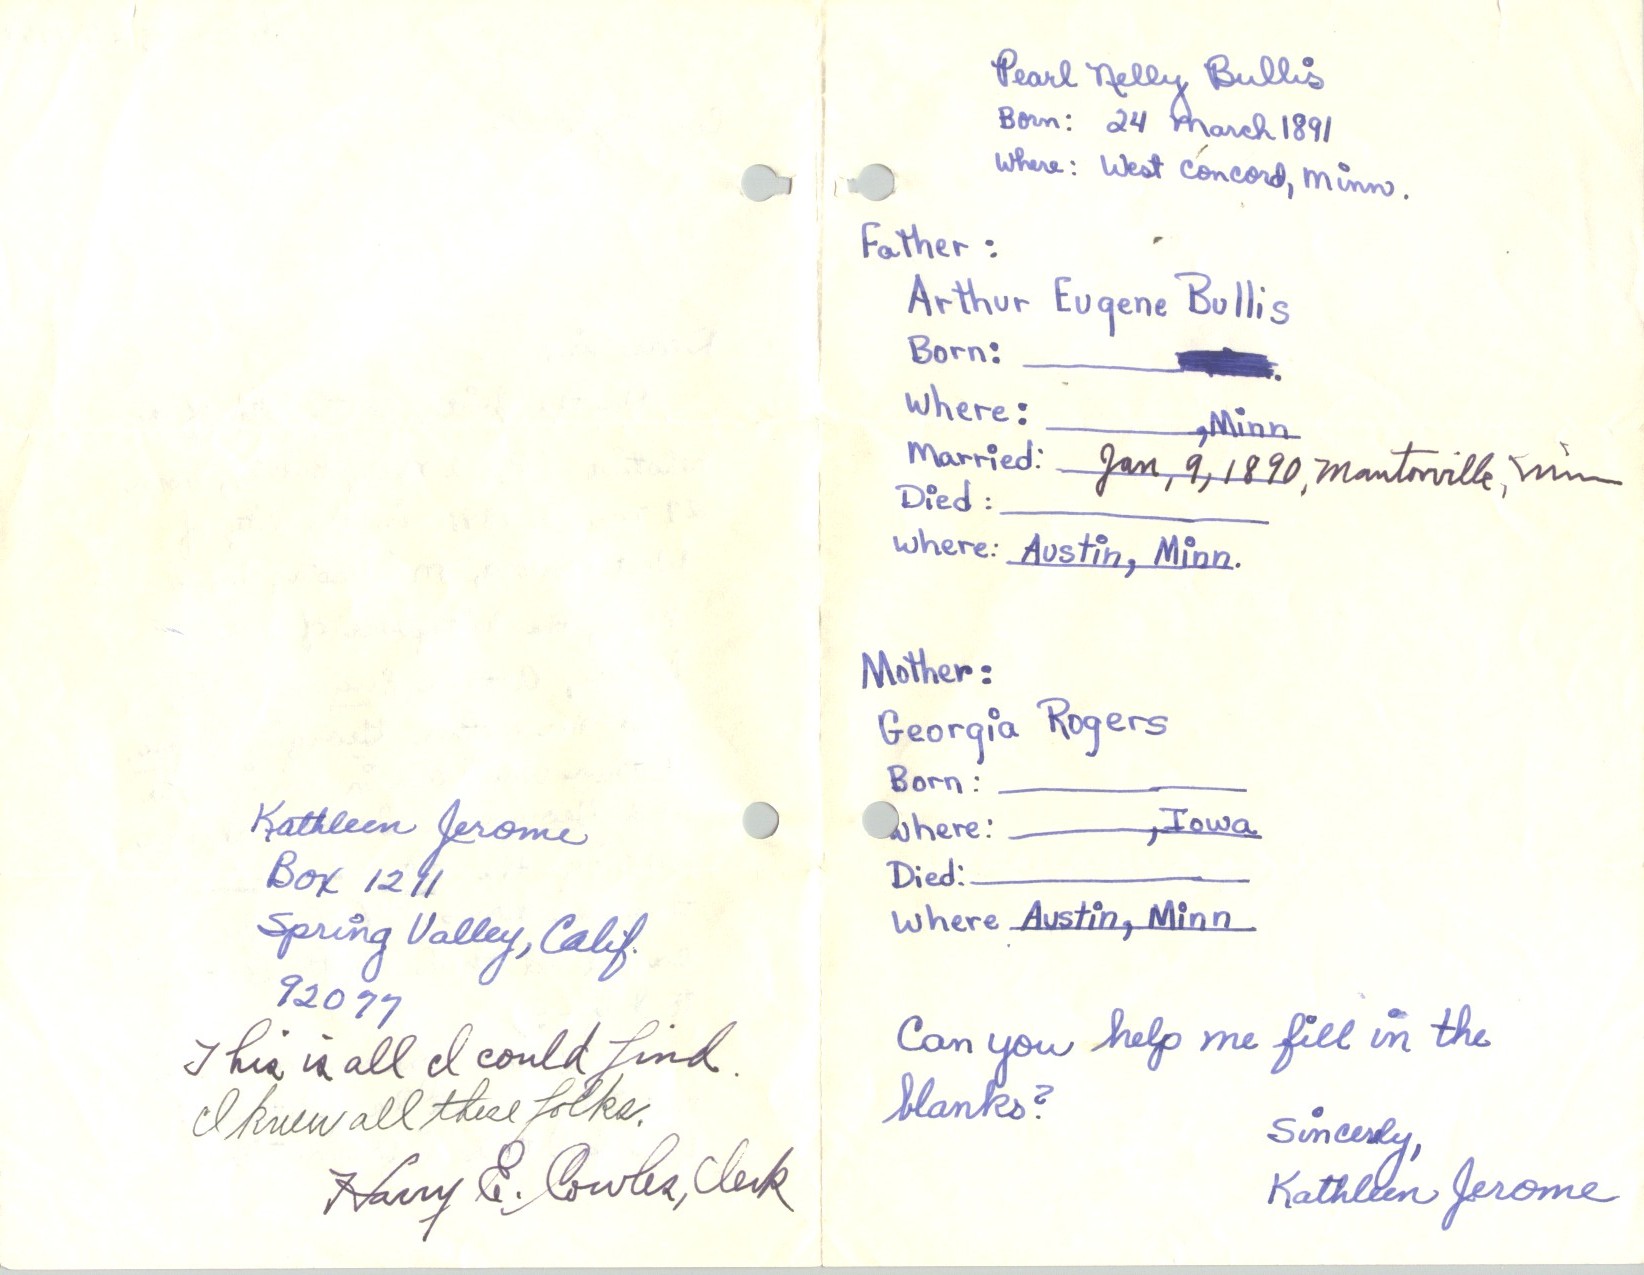 Kathleen Jerome
Box 1211
Spring Valley, Calif.
92077
This is all I could find.
I knew all these folks.
Harry E. Cowles, Clerk
Pearl Nelly Bullis
Born: 24 March 1891
Where: West Concord, Minn.
Father:
Arthur Eugene Bullis
Born:
Where: , Minn
Married: Jan, 9, 1890, Mantorville, Minn
Died:
where: Austin, Minn.
Mother:
Georgia Rogers
Born:
where: , Iowa
Died:
where Austin, Minn
Can you help me fill in the
blanks?
Sincerly,
Kathleen Jerome